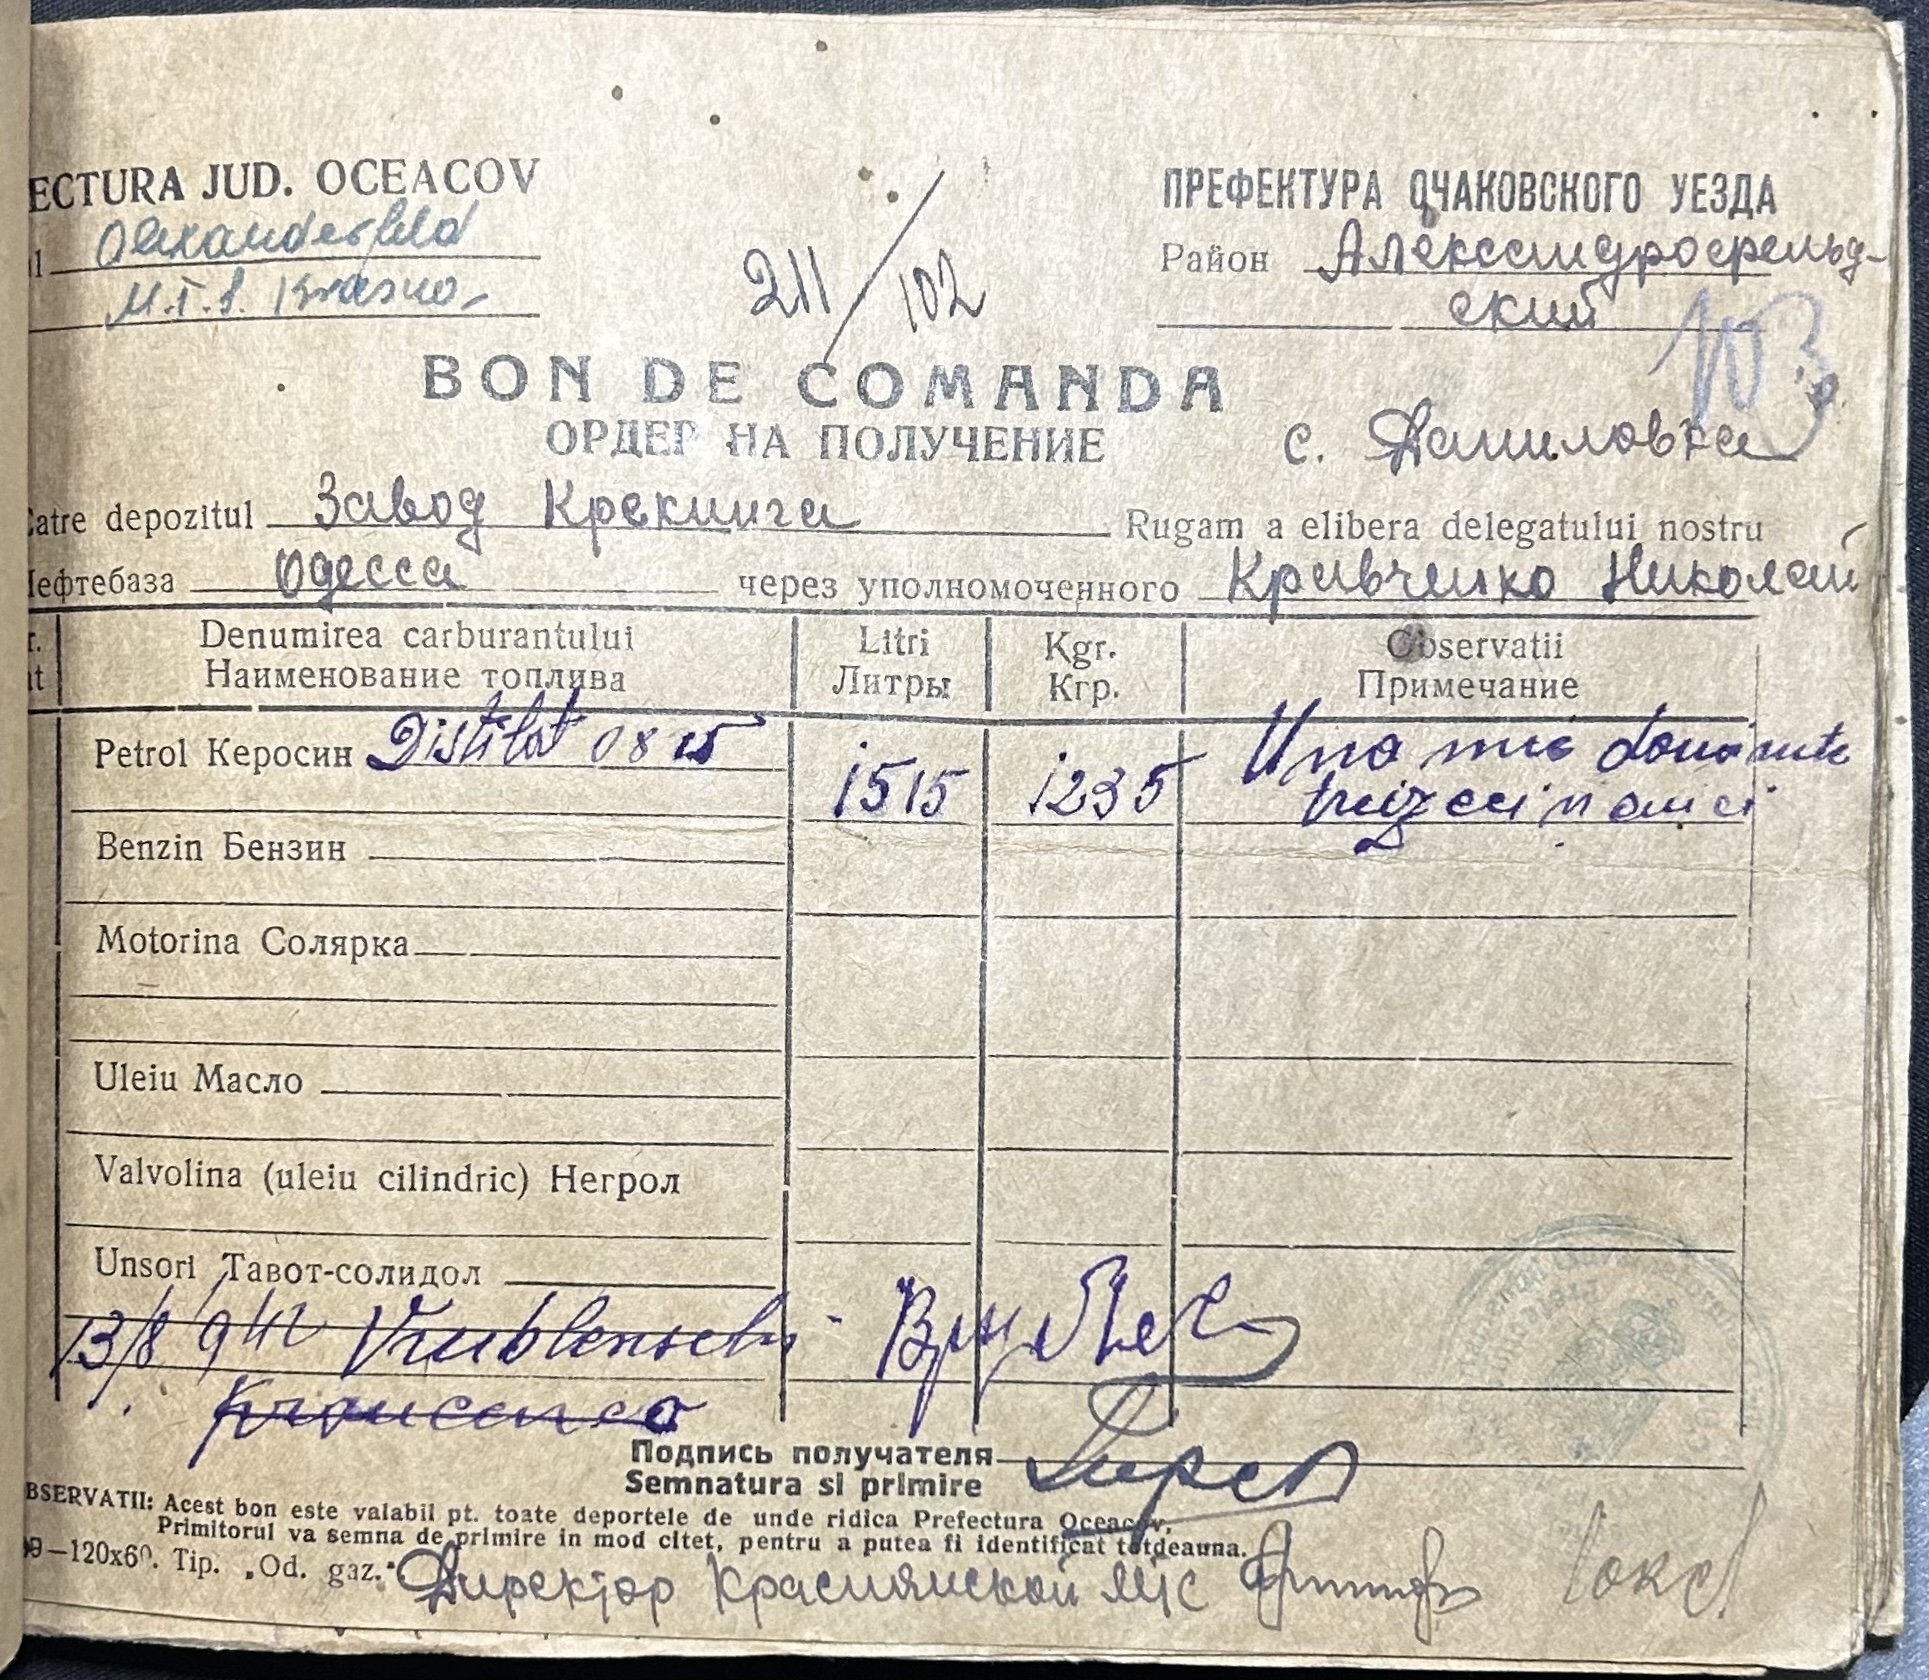 ECTURA JUD. OCEACOV
ПРЕФЕКТУРА ОЧАКОВСКОГО УЕЗДА
l Alexanderfeld
Район Александрофельд-
ский
M.T.S. Krasno-
211/102
103
BON DE COMANDA
ОРДЕР НА ПОЛУЧЕНИЕ
с. Даниловка
Catre depozitul Завод Крекинга Rugam a elibera delegatului nostru
Нефтебаза Одесса через уполномоченного Кривченко Николай
r. Denumirea carburantului Litri Kgr. Observatii
t Наименование топлива Литры Кгр. Примечание
Petrol Керосин Distilat 0815 1515 1235 Una mie doua sute
treizeci si cinci
Benzin Бензин
Motorina Солярка
Uleiu Масло
Valvolina (uleiu cilindric) Негрол
Unsori Тавот-солидол
13/8 942
Подпись получателя
Semnatura si primire
BSERVATII: Acest bon este valabil pt. toate deportele de unde ridica Prefectura Oceacov,
Primitorul va semna de primire in mod citet, pentru a putea fi identificat totdeauna.
—120x60. Tip. „Od. gaz.“
Директор Краснянской МТС